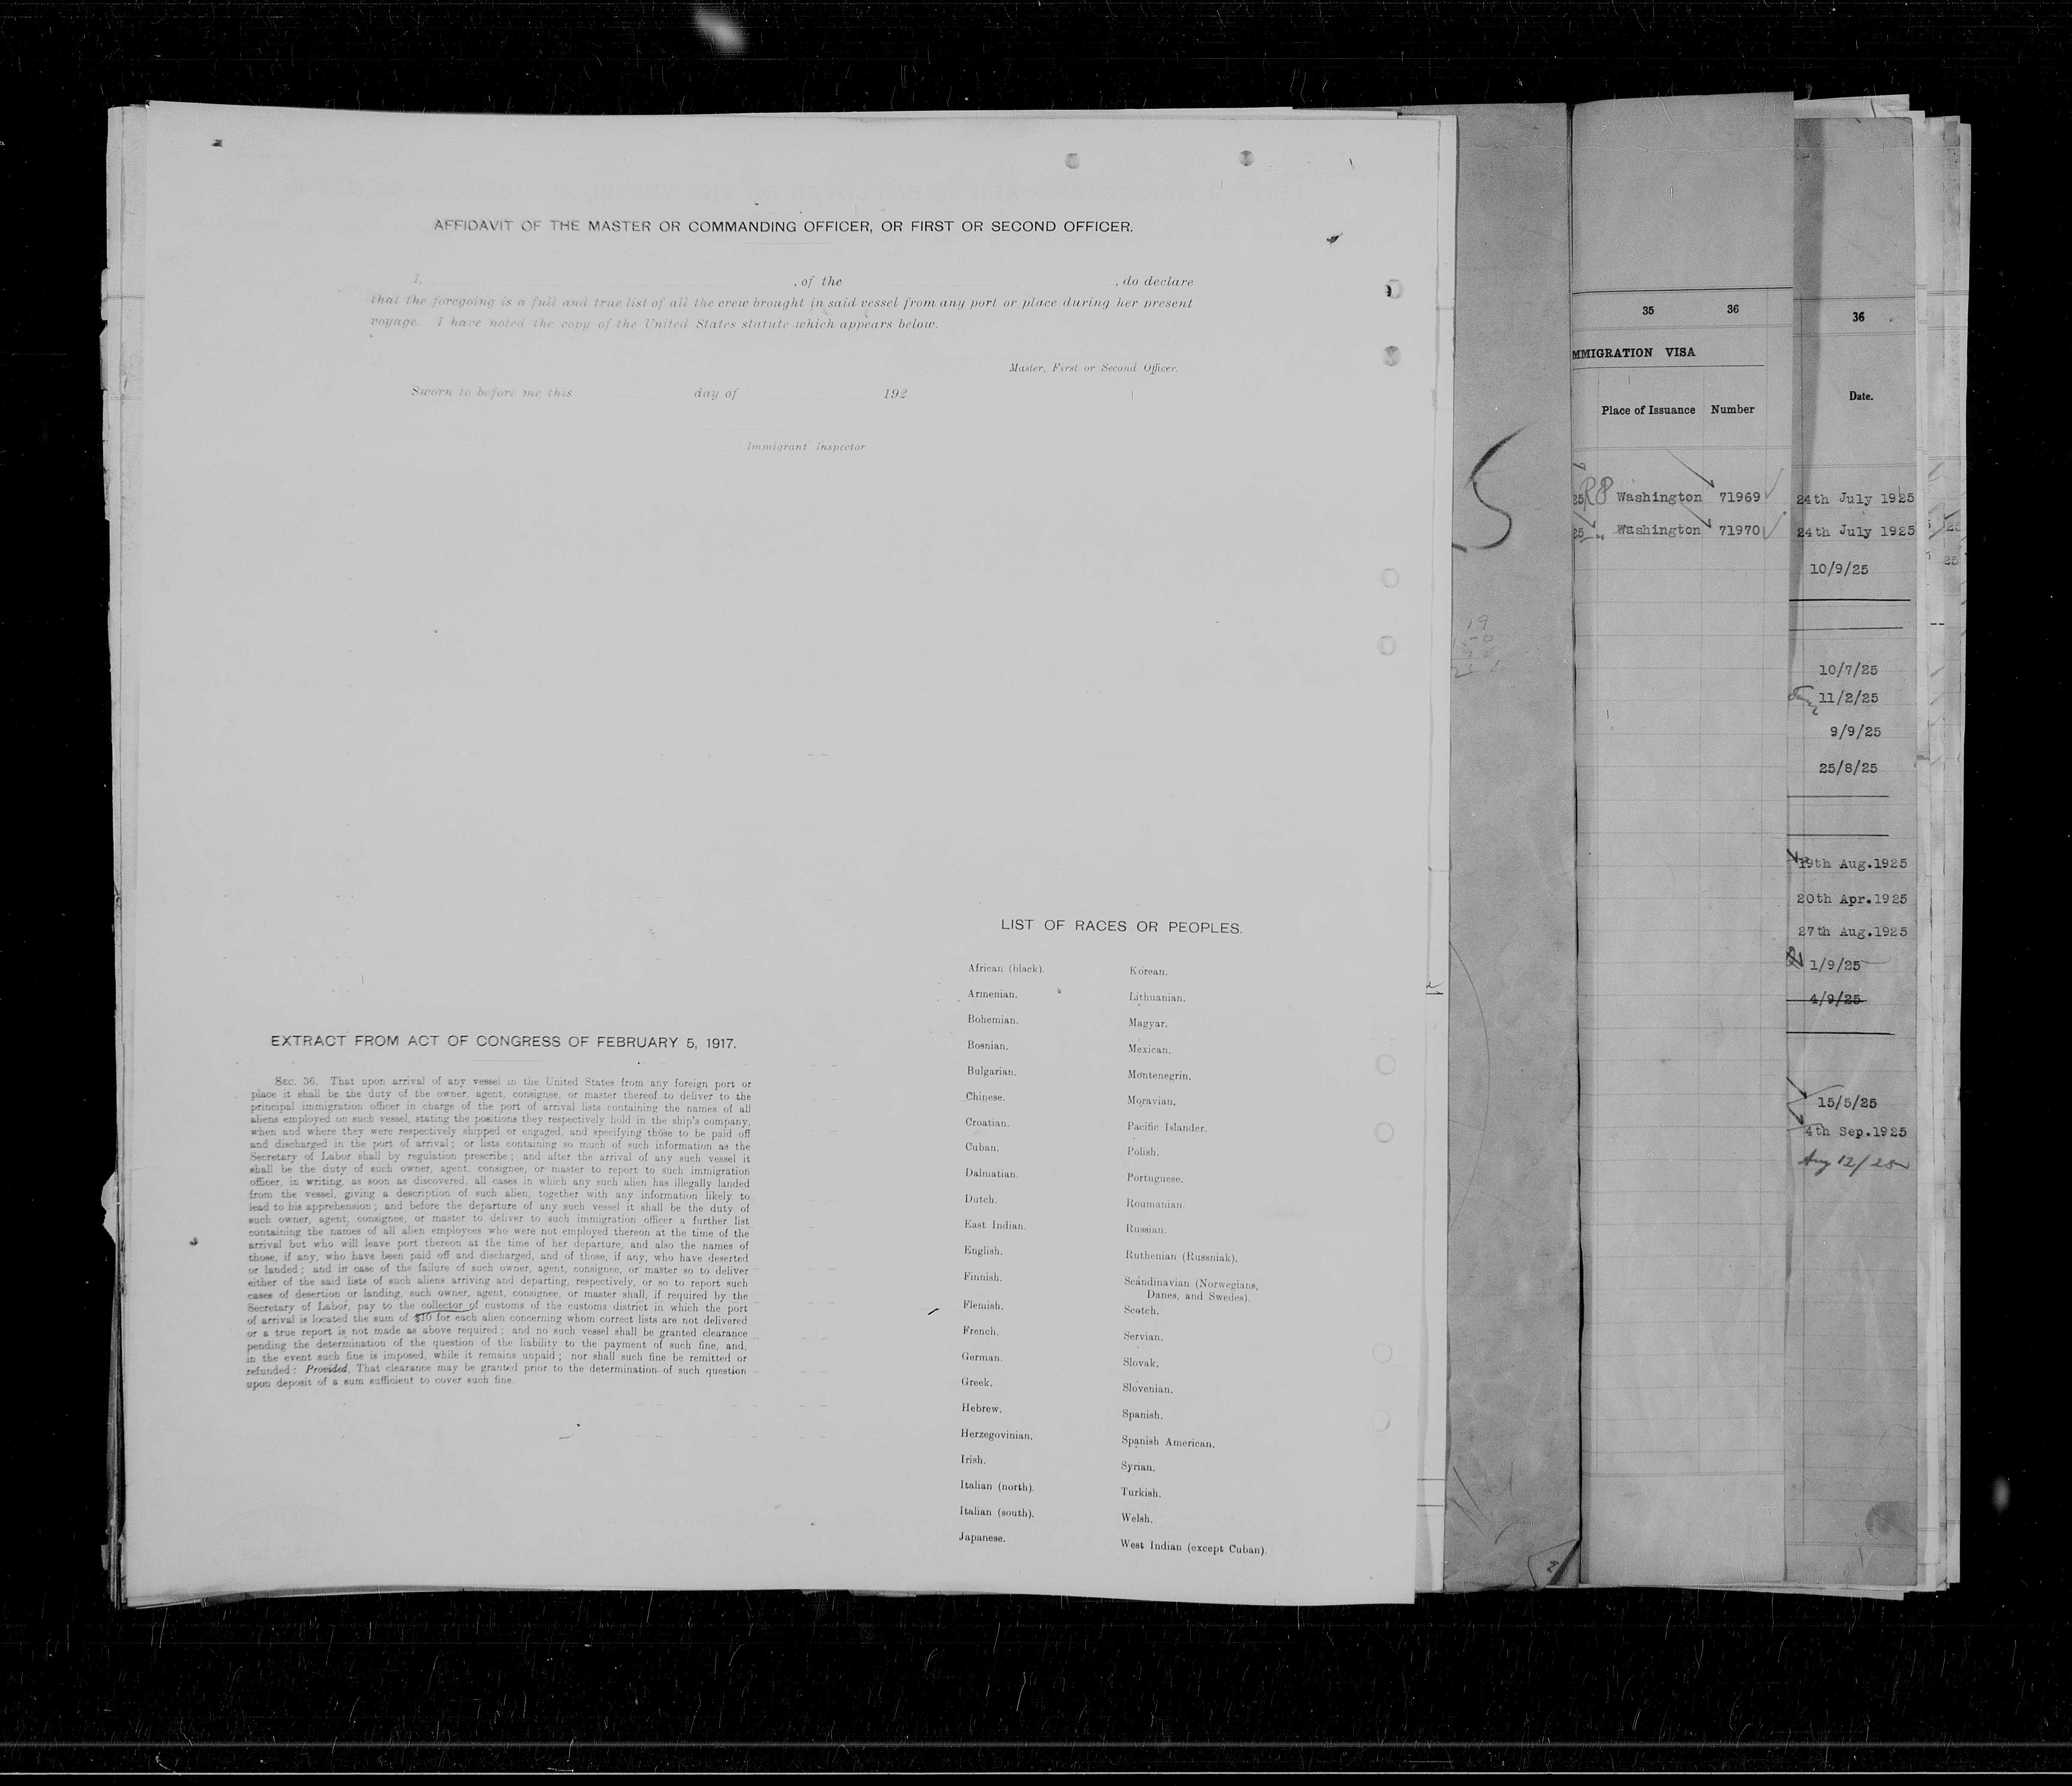 AFFIDAVIT OF THE MASTER OR COMMANDING OFFICER, OR FIRST OR SECOND OFFICER.
I, , of the , do declare
that the foregoing is a full and true list of all the crew brought in said vessel from any port or place during her present
voyage. I have noted the copy of the United States statute which appears below.
Master, First or Second Officer.
Sworn to before me this day of 192
Immigrant Inspector
EXTRACT FROM ACT OF CONGRESS OF FEBRUARY 5, 1917.
SEC. 36. That upon arrival of any vessel in the United States from any foreign port or
place it shall be the duty of the owner, agent, consignee, or master thereof to deliver to the
principal immigration officer in charge of the port of arrival lists containing the names of all
aliens employed on such vessel, stating the positions they respectively hold in the ship's company,
when and where they were respectively shipped or engaged, and specifying those to be paid off
and discharged in the port of arrival; or lists containing so much of such information as the
Secretary of Labor shall by regulation prescribe; and after the arrival of any such vessel it
shall be the duty of such owner, agent, consignee, or master to report to such immigration
officer, in writing, as soon as discovered, all cases in which any such alien has illegally landed
from the vessel, giving a description of such alien, together with any information likely to
lead to his apprehension; and before the departure of any such vessel it shall be the duty of
such owner, agent, consignee, or master to deliver to such immigration officer a further list
containing the names of all alien employees who were not employed thereon at the time of the
arrival but who will leave port thereon at the time of her departure, and also the names of
those, if any, who have been paid off and discharged, and of those, if any, who have deserted
or landed; and in case of the failure of such owner, agent, consignee, or master so to deliver
either of the said lists of such aliens arriving and departing, respectively, or so to report such
cases of desertion or landing, such owner, agent, consignee, or master shall, if required by the
Secretary of Labor, pay to the collector of customs of the customs district in which the port
of arrival is located the sum of $10 for each alien concerning whom correct lists are not delivered
or a true report is not made as above required; and no such vessel shall be granted clearance
pending the determination of the question of the liability to the payment of such fine, and,
in the event such fine is imposed, while it remains unpaid; nor shall such fine be remitted or
refunded: Provided, That clearance may be granted prior to the determination of such question
upon deposit of a sum sufficient to cover such fine.
LIST OF RACES OR PEOPLES.
African (black).
Armenian.
Bohemian.
Bosnian.
Bulgarian.
Chinese.
Croatian.
Cuban.
Dalmatian.
Dutch.
East Indian.
English.
Finnish.
Flemish.
French.
German.
Greek.
Hebrew.
Herzegovinian.
Irish.
Italian (north).
Italian (south).
Japanese.
Korean.
Lithuanian.
Magyar.
Mexican.
Montenegrin.
Moravian.
Pacific Islander.
Polish.
Portuguese.
Roumanian.
Russian.
Ruthenian (Russniak).
Scandinavian (Norwegians,
Danes, and Swedes).
Scotch.
Servian.
Slovak.
Slovenian.
Spanish.
Spanish American.
Syrian.
Turkish.
Welsh.
West Indian (except Cuban).
35 36
MMIGRATION VISA
Place of Issuance Number
25 Washington 71969
25 Washington 71970
36
Date.
24th July 1925
24th July 1925
10/9/25
10/7/25
11/2/25
9/9/25
25/8/25
19th Aug.1925
20th Apr.1925
27th Aug.1925
1/9/25
4/9/25
15/5/25
4th Sep.1925
Aug 12/25